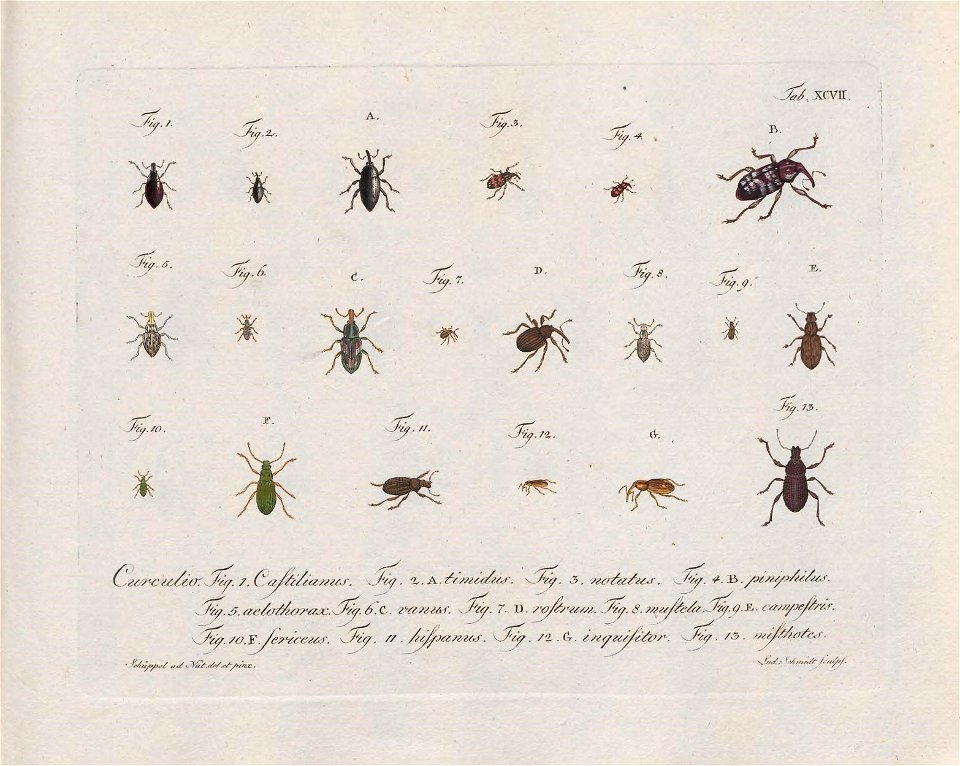 Tab. XCVII.
Fig. 1. Fig. 2. A. Fig. 3. Fig. 4. B.
Fig. 5. Fig. 6. C. Fig. 7. D. Fig. 8. Fig. 9. E.
Fig. 10. F. Fig. 11. Fig. 12. G. Fig. 13.
Curculio. Fig. 1. Caſtilianus. Fig. 2. A. timidus. Fig. 3. notatus. Fig. 4. B. piniphilus.
Fig. 5. aelothorax. Fig. 6. C. vanus. Fig. 7. D. roſtrum. Fig. 8. muſtela. Fig. 9. E. campeſtris.
Fig. 10. F. ſericeus. Fig. 11. hiſpanus. Fig. 12. G. inquiſitor. Fig. 13. miſthotes.
Schüppel ad Nat. del. et pinx. Lud: Schmidt ſculpſ.